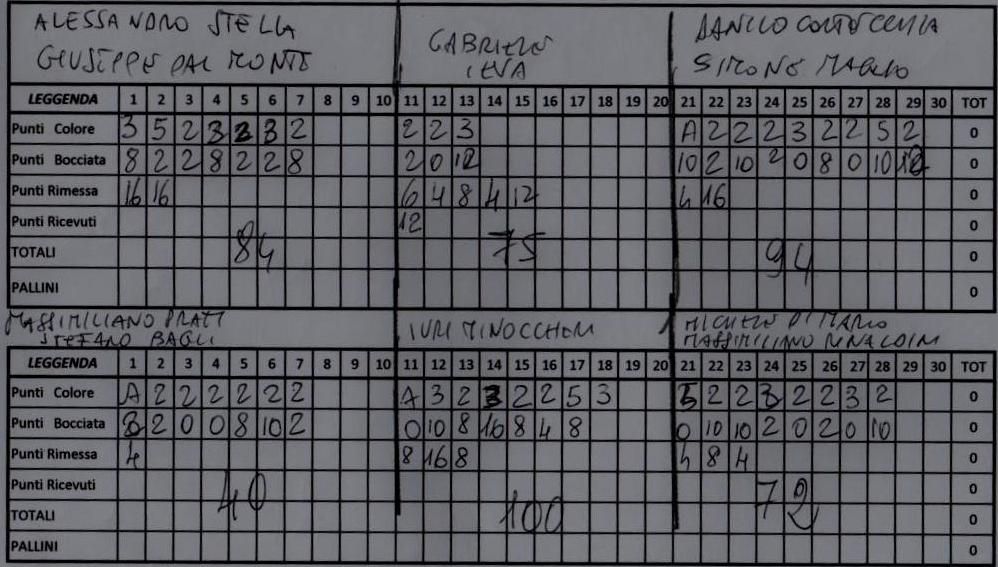 ALESSANDRO STELLA GABRIELE DANILO
GIUSEPPE DAL MONTE IEVA SIMONE MAGLIO
LEGGENDA 1 2 3 4 5 6 7 8 9 10 11 12 13 14 15 16 17 18 19 20 21 22 23 24 25 26 27 28 29 30 TOT
Punti Colore 3 5 2 3 2 3 2 2 2 3 A 2 2 2 3 2 2 5 2 0
Punti Bocciata 8 2 2 8 2 2 8 2 0 12 10 2 10 2 0 8 0 10 0
Punti Rimessa 16 16 6 4 8 4 12 4 16 0
Punti Ricevuti 12 0
TOTALI 84 75 94 0
PALLINI 0
MASSIMILIANO PRATI IURI MINOCCHERI MICHELE DI MARIO
STEFANO BAGLI MASSIMILIANO RINALDINI
LEGGENDA 1 2 3 4 5 6 7 8 9 10 11 12 13 14 15 16 17 18 19 20 21 22 23 24 25 26 27 28 29 30 TOT
Punti Colore A 2 2 2 2 2 2 A 3 2 3 2 2 5 3 5 2 2 3 2 2 3 2 0
Punti Bocciata 2 0 0 8 10 2 0 10 8 16 8 4 8 0 10 10 2 0 2 0 10 0
Punti Rimessa 4 8 16 8 4 8 4 0
Punti Ricevuti 40 72 0
TOTALI 100 0
PALLINI 0